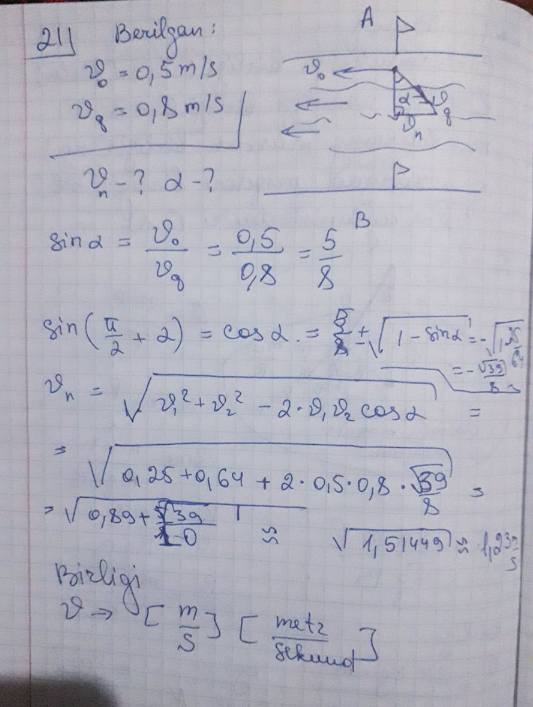 211 Berilgan: A
ϑ₀ = 0,5 m/s ϑ₀
ϑq = 0,8 m/s α ϑq
ϑn
ϑn - ? α - ?
B
sinα = ϑ₀/ϑq = 0,5/0,8 = 5/8
sin(π/2 + α) = cosα = ±√(1 - sinα) = -√
= -√39/8
ϑn = √(ϑ₁² + ϑ₂² - 2·ϑ₁ϑ₂ cosα) =
= √(0,25 + 0,64 + 2·0,5·0,8·√39/8) =
= √(0,89 + √39/10) ≈ √1,51449 ≈ 1,23 m/s
Birligi
ϑ → [m/s] [metr/sekund]